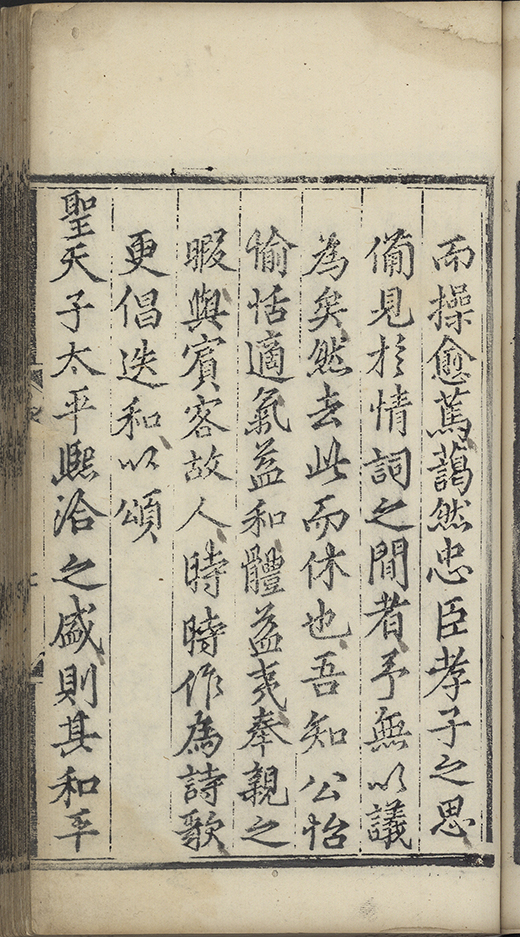 而操愈篤藹然忠臣孝子之思
備見於情詞之間者予無以議
為矣然去此而休也吾知公怡
愉恬適氣益和體益夷奉親之
暇與賓客故人時時作為詩歌
更倡迭和以頌
聖天子太平熈洽之盛則其和平